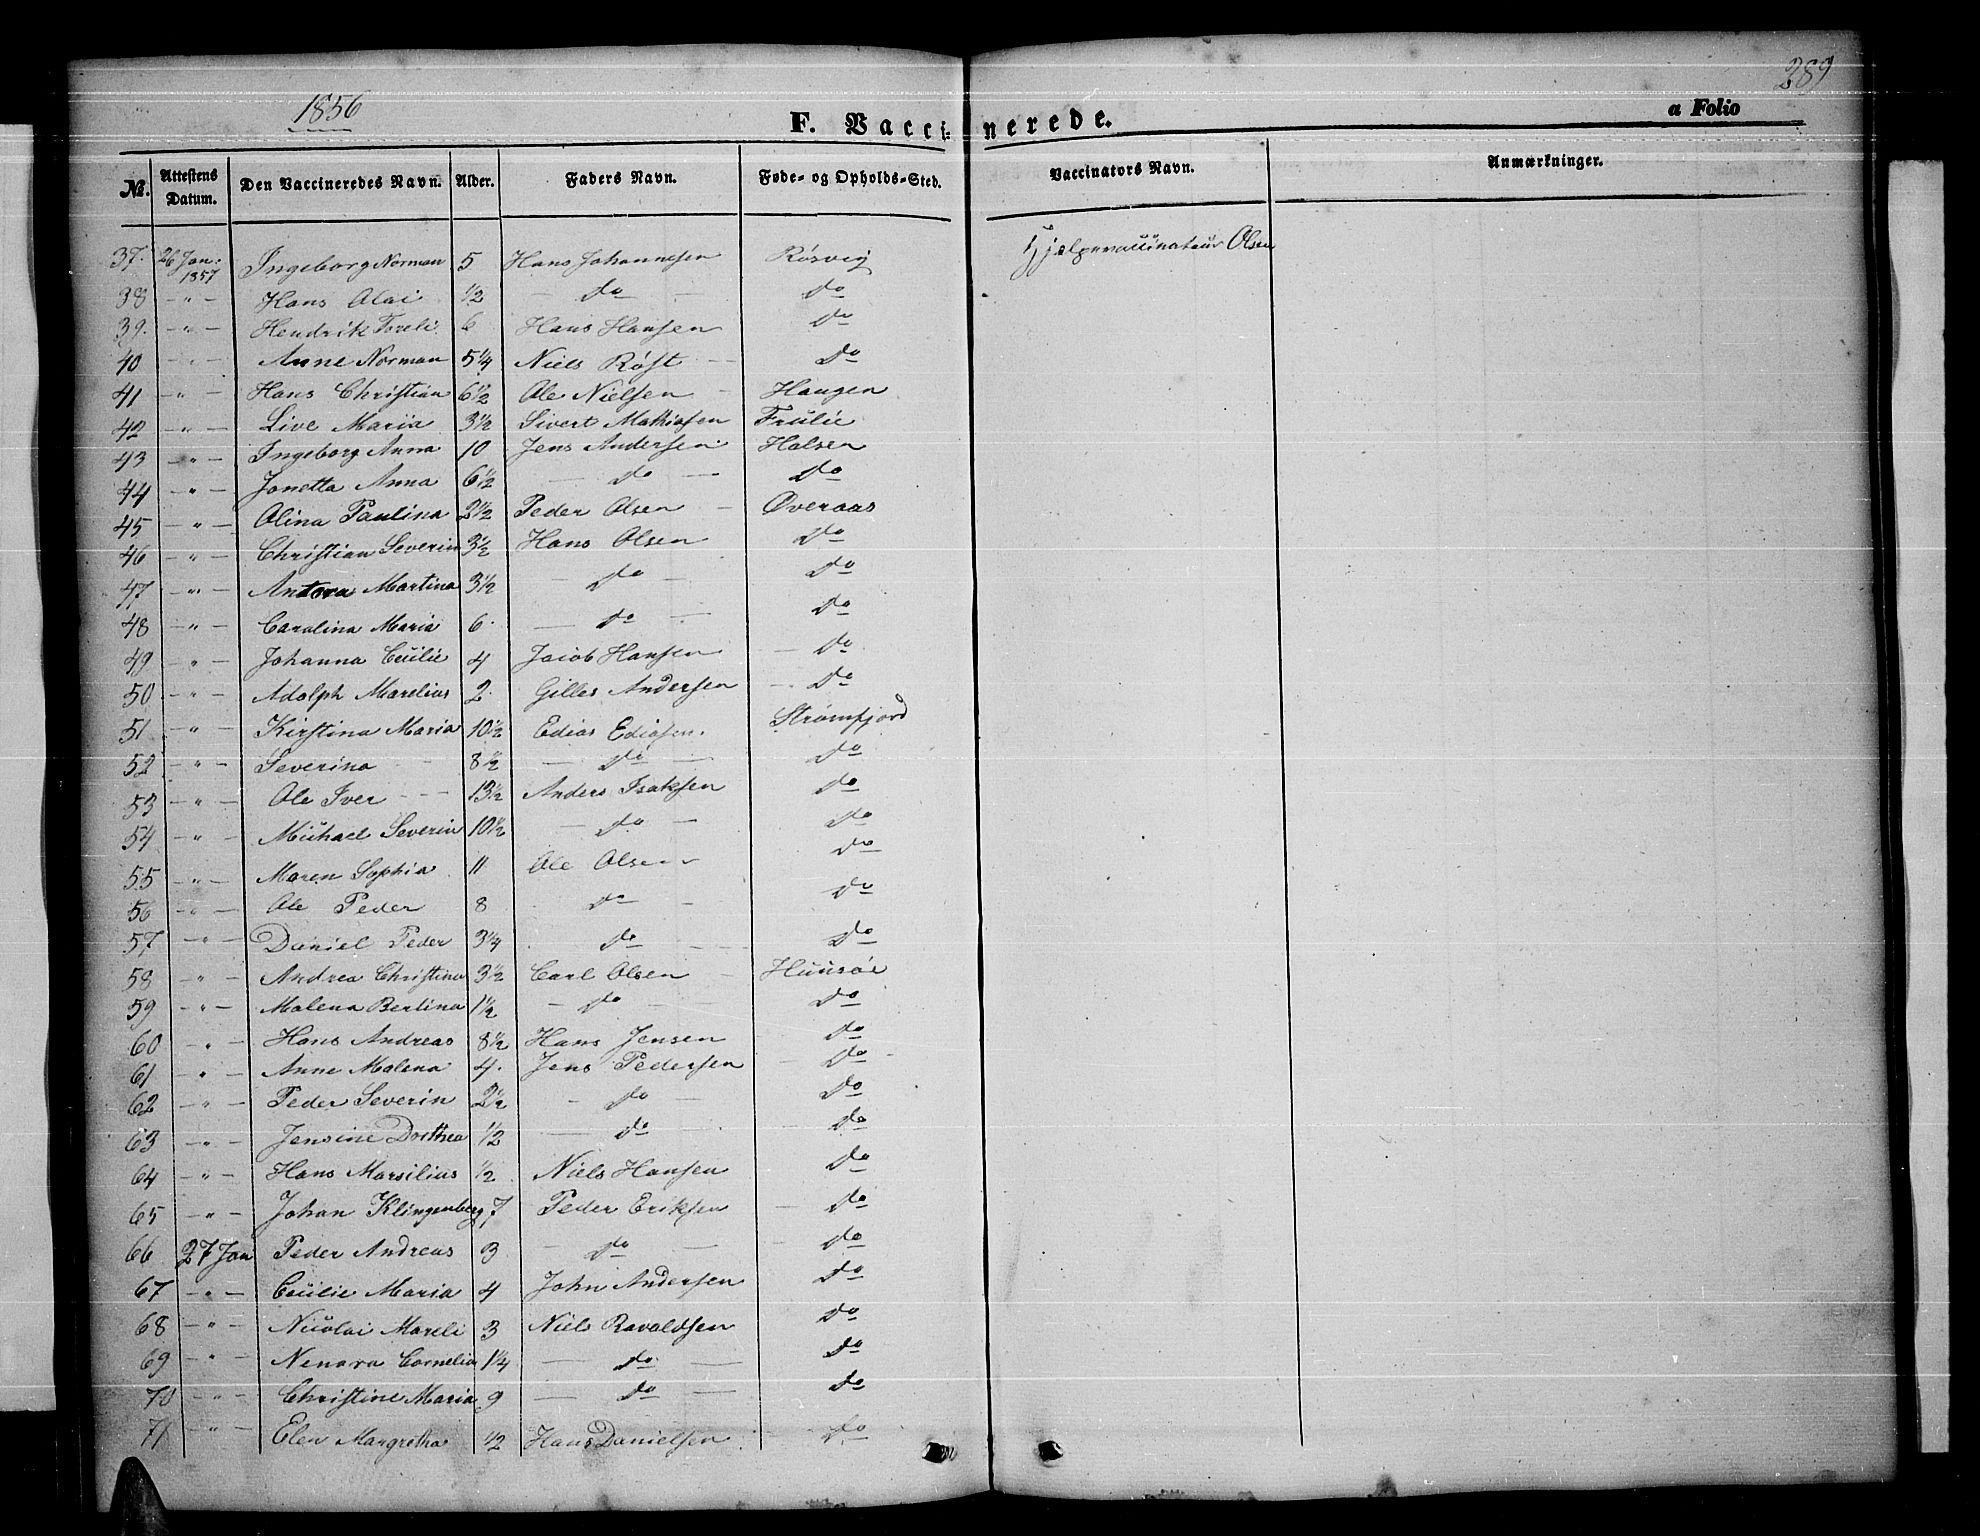 1856
289
F. Vaccinerede.
a Folio
№. Attestens Datum. Den Vaccineredes Navn. Alder. Faders Navn. Føde- og Opholds-Sted. Vaccinators Navn. Anmærkninger.
37. 26 Jan. 1857 Ingeborg Norman 5 Hans Johannesen Røsvig Hjelpevaccinateur Olsen
38 — " — Hans Olai 1/2 — do — do
39. — " — Hendrik Toreli 6 Hans Hansen do
40 — " — Anne Norman 5 1/4 Niels Røst — do
41 — " — Hans Christian 6 1/2 Ole Nielsen — Haugen
42 — " — Live Maria 3 1/2 Sivert Mathiasen
43 — " — Ingeborg Anna 10 Jens Andersen Halsen
44 — " — Jonetta Anna 6 1/2 — do — do
45 — " — Olina Paulina 2 1/2 Peder Olsen — Øveraas
46 — " — Christian Severin 3 1/2 Hans Olsen do
47 — " — Martina 3 1/2 — do — do
48 — " — Carolina Maria 6. — do — do
49 — " — Johanna Cecilie 4 Jacob Hansen — do
50 — " — Adolph Marelius 2. Gilles Andersen — do
51 — " — Kirstina Maria 10 1/2 Edias Ediasen. Strømfjord
52 — " — Severina 8 1/2 — do — do
53 — " — Ole Iver 13 1/2 Anders Isaksen do
54 — " — Michael Severin 10 1/2 — do — do
55 — " — Maren Sophia 11 Ole Olsen do
56 — " — Ole Peder 8 do — do
57 — " — Daniel Peder 3 1/4 do — do
58 — " — Andrea Christina 3 1/2 Carl Olsen — Huusøe
59 — " — Malena Bertina 1 1/2 — do — do
60 — " — Hans Andreas 8 1/2 Hans Jensen do
61 — " — Anne Malena 4. Jens Pedersen — do
62 — " — Peder Severin 2 1/2 — do — do
63 — " — Jensine Dorthea 1/2 — do — do
64 — " — Hans Marsilius 1/2 Niels Hansen do
65 — " — Johan Klingenberg 7 Peder Eriksen — do
66 27 Jan Peder Andreas 3 — do — do
67 — " — Cecilie Maria 4 John Andersen do
68 — " — Nicolai Mareli 3 Niels Ravaldsen do
69 — " — Nenora Cornelia 1 1/4 — do — do
70 — " — Christine Maria 9 — do — do
71 — " — Elen Margretha 1/2 Hans Danielsen — do